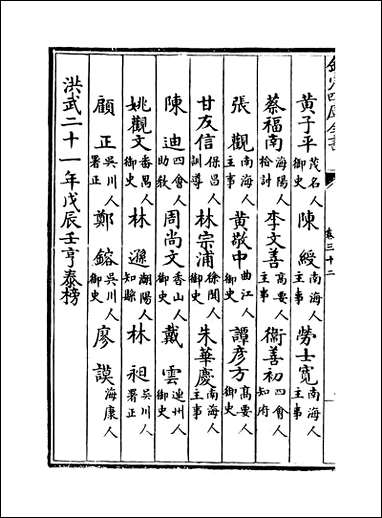 卷三十二
黃子平 茂名人 御史 陳綬 南海人 主事 勞士寬 南海人 主事
蔡福南 海陽人 檢討 李文善 高要人 主事 衞善初 四會人 知府
張觀 南海人 主事 黃敬中 曲江人 御史 譚彦方 高要人 御史
甘友信 保昌人 訓導 林宗浦 徐聞人 御史 朱華慶 南海人 主事
陳迪 四會人 助敎 周尚文 香山人 御史 戴雲 連州人 御史
姚觀文 番禺人 御史 林遜 潮陽人 知縣 林昶 吳川人 署正
顧正 吳川人 署正 鄭鎔 吳川人 御史 廖謨 海康人
洪武二十一年戊辰壬亨泰榜